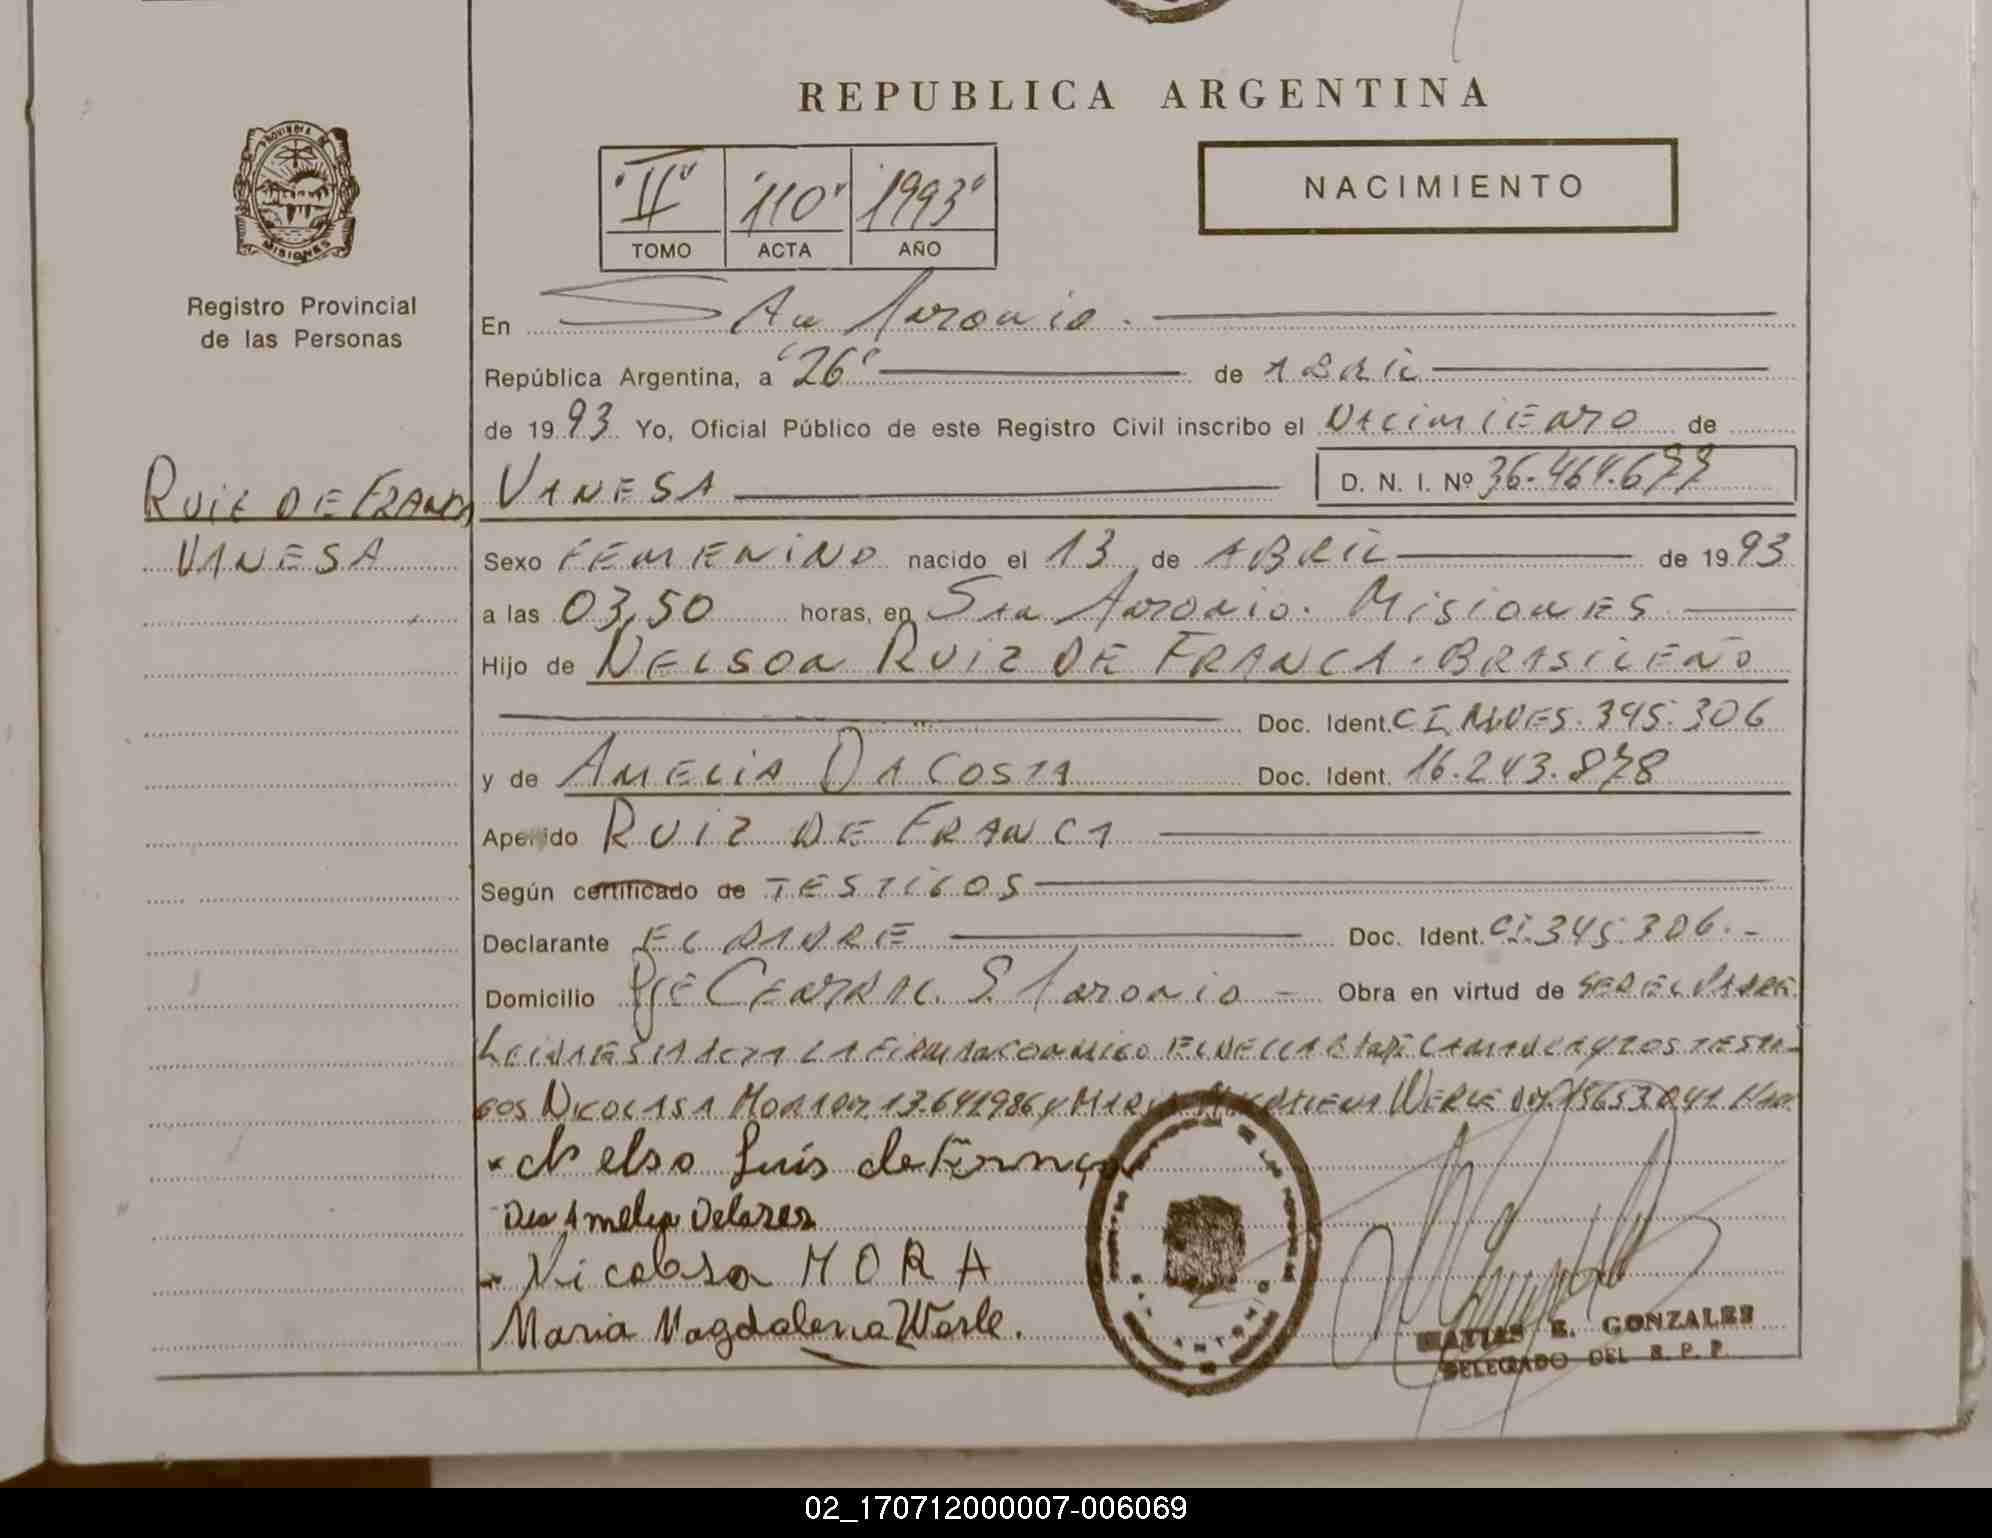 REPUBLICA ARGENTINA
PROVINCIA DE
MISIONES
Registro Provincial
de las Personas
"II" "110" "1993"
TOMO ACTA AÑO
NACIMIENTO
En San Antonio.
República Argentina, a "26" de ABRIL
de 1993 Yo, Oficial Público de este Registro Civil inscribo el NACIMIENTO de
RUIZ DE FRANCA
VANESA
VANESA D. N. I. Nº 36.461.677
Sexo FEMENINO nacido el 13 de ABRIL de 1993
a las 03,50 horas, en San Antonio. MISIONES
Hijo de NELSON RUIZ DE FRANCA. BRASILEÑO
Doc. Ident. C I 345.306
y de AMELIA DA COSTA Doc. Ident. 16.243.878
Apellido RUIZ DE FRANCA
Según certificado de TESTIGOS
Declarante EL PADRE Doc. Ident. CI.345.306.-
Domicilio PJE CENTRAL. S. Antonio - Obra en virtud de SER EL PADRE.
LEIDA ESTA ACTA LA FIRMAN CONMIGO EL Y LOS TESTI-
GOS NICOLASA MORA 13.641986 y MARIA MAGDALENA WERLE
Nelso Luis de França
Nicolasa MORA
Maria Magdalena Werle.
MATIAS E. GONZALES
DELEGADO DEL R. P. P.
02_170712000007-006069